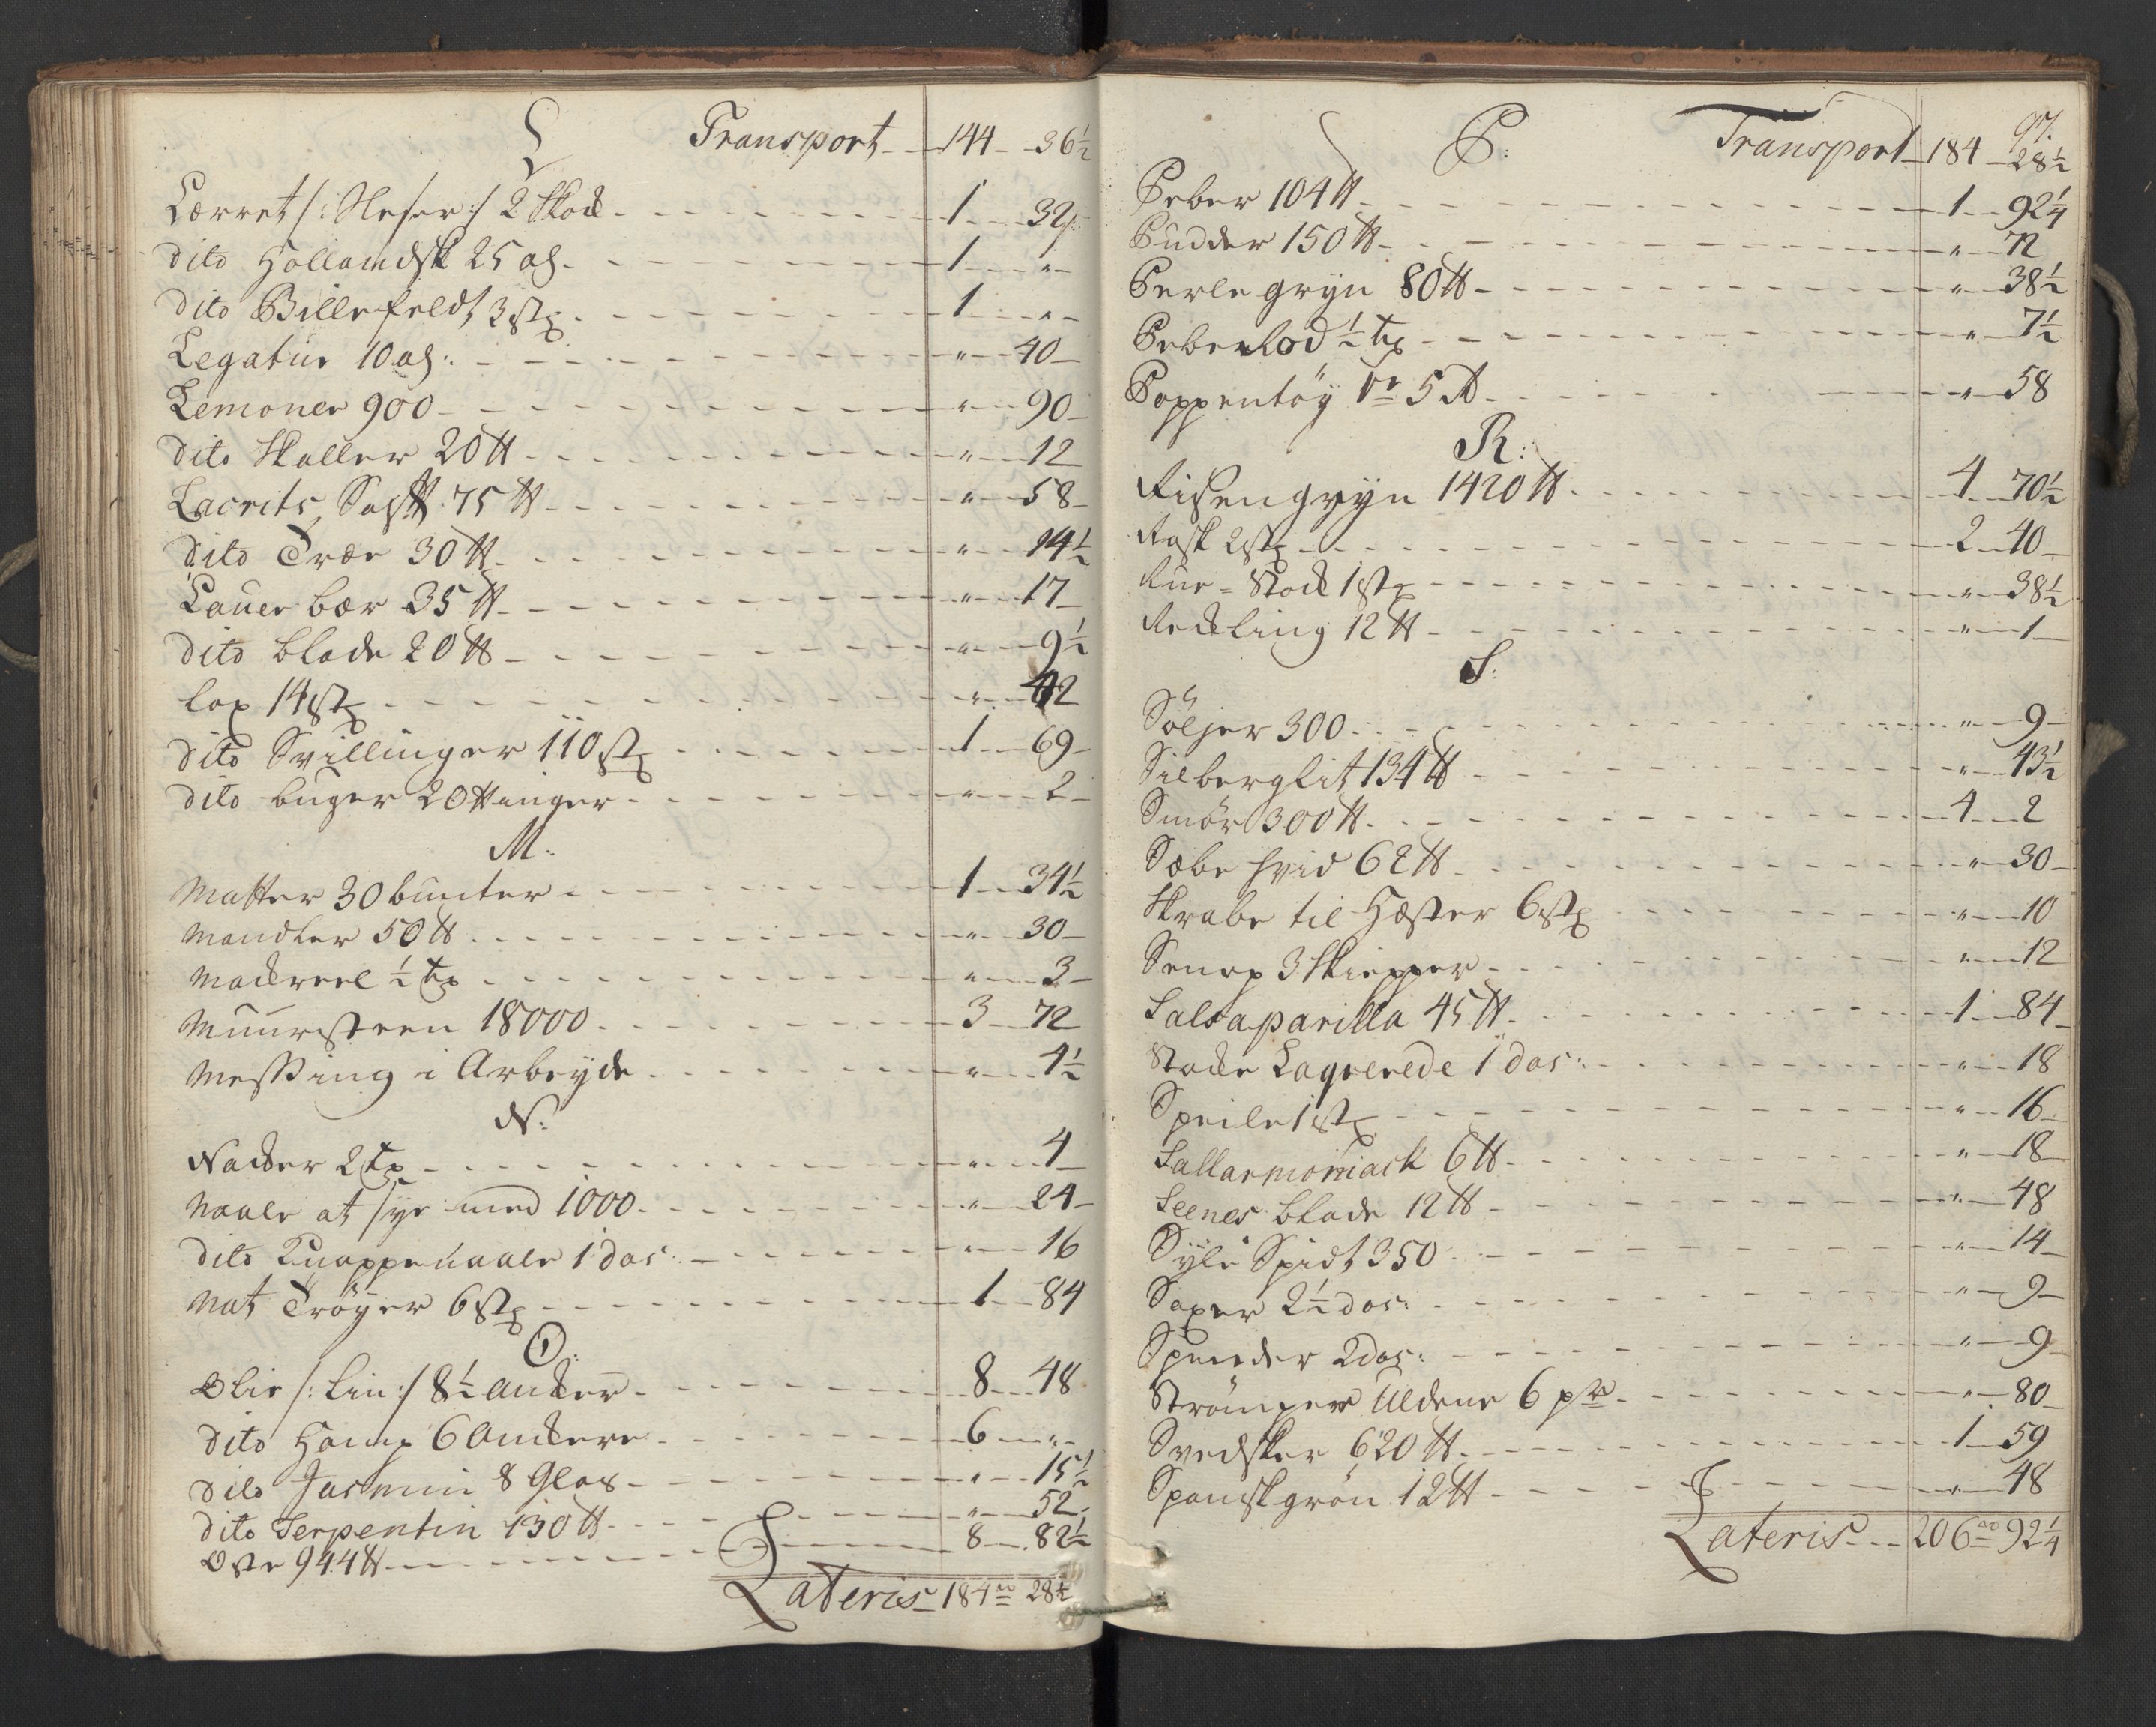 L Transport 144 36½
Lærret /: Neser :/ 2 Skock 1 32
dito Hollandsk 25 al. 1 "
dito Billefeldt 3 st. 1 "
Legatur 10 al: " 40
Lemoner 900 " 90
dito Skaller 20 ℔ " 12
Lacrits Saft 75 ℔ " 58
dito Træe 30 ℔ " 14½
Lauer bær 35 ℔ " 17
dito blade 20 ℔ " 9½
Lax 14 st. " 42
dito Svillinger 110 st. 1 69
dito buger 20 ttinger " 2
M:
Matter 30 bunter 1 34½
Mandler 50 ℔ " 30
Mackreel ½ tx " 3
Muursteen 18000 3 72
Messing i Arbeyde " 4½
N:
Nødder 2 tx " 4
Naale at sye med 1000 " 24
dito Knappenaale 1 dos: " 16
Nat Trøyer 6 st. 1 84
O:
Olie /: Lin :/ 8½ Ancker 8 48
dito Hamp 6 Anckere 6 "
dito Jasmin 8 Glas " 15½
dito Serpentin 130 ℔ " 52
Oste 944 ℔ 8 82½
Lateris 184 28½
97.
P: Transport 184 28½
Peber 104 ℔ 1 92¼
Pudder 150 ℔ " 72
Perle gryn 80 ℔ " 38½
Peber Rod ½ tx " 7½
Poppentøy 5 " 58
R:
Risengryn 1420 ℔ 4 70½
Rask 2 st. 2 40
Rue-Stock 1 st. " 38½
Reckling 12 ℔ " 1
S:
Søljer 300 " 9
Silberglit 134 ℔ " 43½
Smør 300 ℔ 4 2
Sæbe hvid 62 ℔ " 30
Skrabe til Hæster 6 st. " 10
Senop 3 Skiepper " 12
Salsaparilla 45 ℔ 1 84
Stocke Laqverede 1 dos: " 18
Speile 1 st. " 16
Sallarmoniack 6 ℔ " 18
Seenes blade 12 ℔ " 48
Syle Spidt 350 " 14
Saxer 2½ dos: " 9
Spender 2 dos: " 9
Strømper Uldene 6 pr " 80
Svedsker 620 ℔ 1 59
Spanskgrøn 12 ℔ " 48
Lateris 206 92¼